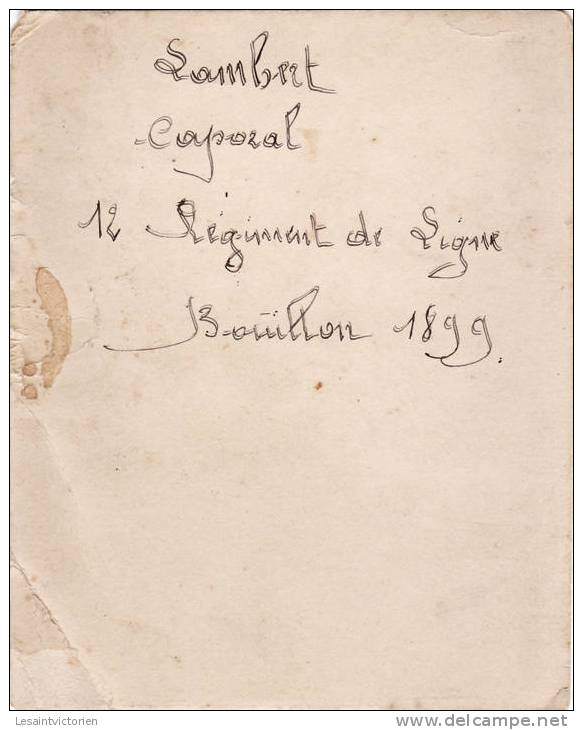 Lambert
Caporal
12 Régiment de Ligne
Bouillon 1899.
Lesaintvictorien
delcampe.net